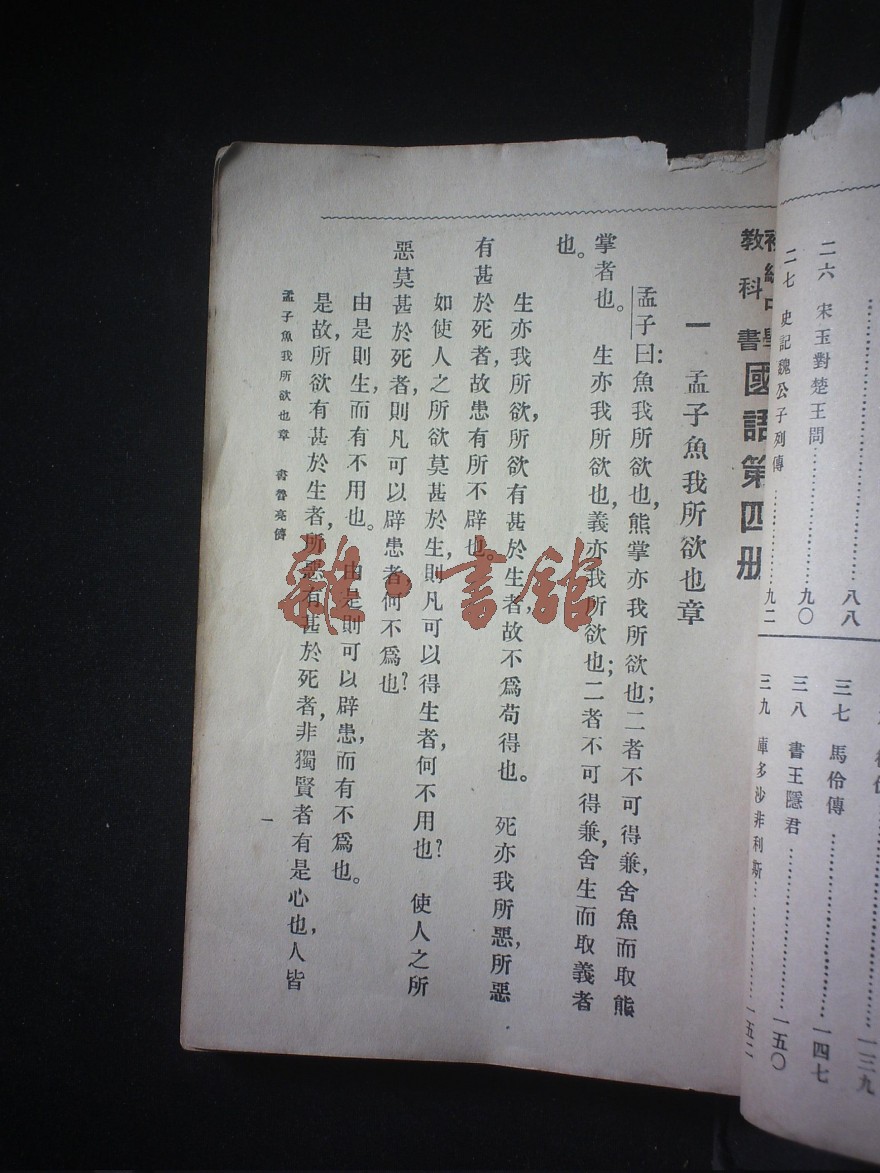 二六　宋玉對楚王問……九〇
二七　史記魏公子列傳……九二
八八
三七　馬伶傳……一四七
三八　書王隱君……一五〇
三九　庫多沙非利斯……一五二
一三九
教科書
國語第四册
一　孟子魚我所欲也章
孟子曰：魚我所欲也，熊掌亦我所欲也；二者不可得兼，舍魚而取熊
掌者也。　生亦我所欲也，義亦我所欲也；二者不可得兼，舍生而取義者
也。
生亦我所欲，所欲有甚於生者，故不爲苟得也。　死亦我所惡，所惡
有甚於死者，故患有所不辟也。
如使人之所欲莫甚於生，則凡可以得生者，何不用也？　使人之所
惡莫甚於死者，則凡可以辟患者，何不爲也？
由是則生，而有不用也。　由是則可以辟患，而有不爲也。
是故所欲有甚於生者，所惡有甚於死者，非獨賢者有是心也，人皆
孟子魚我所欲也章　書魯亮儕
一
雜·書舘